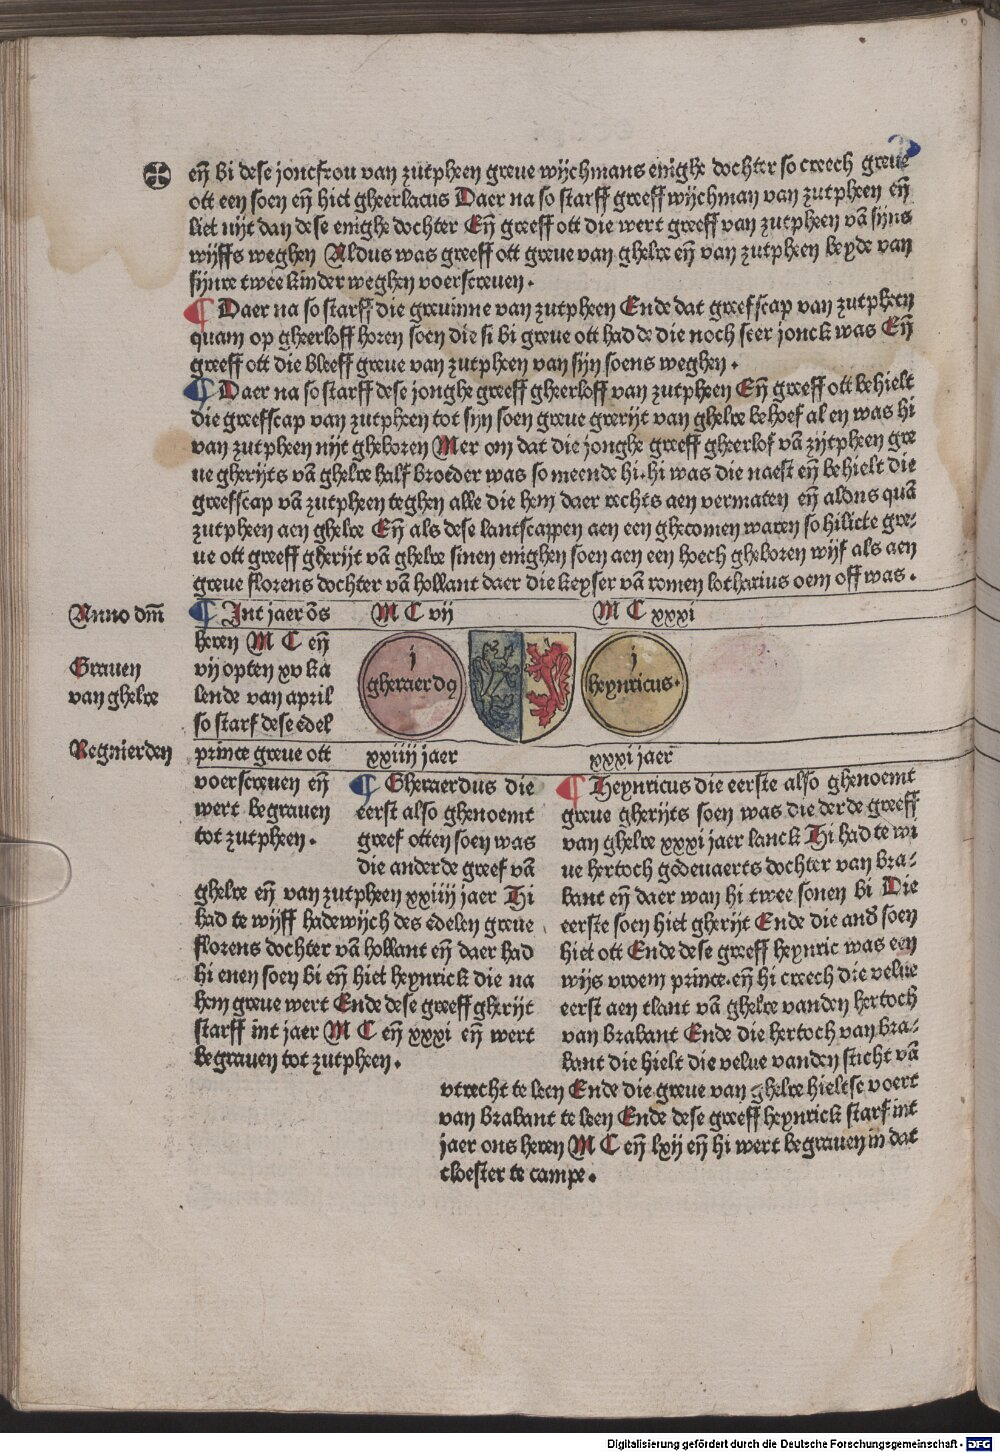 eñ bi dese joncfrou van zutpheen greue wijchmans enighe dochter so creech greue
ott een soen eñ hiet gheerlacus Daer na so starff greeff wijchman van zutpheen eñ
liet nijt dan dese enighe dochter Eñ greeff ott die wert greeff van zutpheen vā sijns
wijffs weghen Aldus was greeff ott greue van ghelre eñ van zutpheen beyde van
sijnre twee kinder weghen voerscreuen.
¶ Daer na so starff die greuinne van zutpheen Ende dat greefscap van zutpheen
quam op gheerloff horen soen die si bi greue ott hadde die noch seer jonck was Eñ
greeff ott die bleeff greue van zutpheen van sijn soens weghen.
¶ Daer na so starff dese jonghe greeff gheerloff van zutpheen Eñ greeff ott behielt
die greefscap van zutpheen tot sijn soen greue grerijt van ghelre behoef al en was hi
van zutpheen nijt gheboren Mer om dat die jonghe greeff gheerlof vā zijtpheen gre
ue gherijts vā ghelre half broeder was so meende hi. hi was die naest eñ behielt die
greefscap vā zutpheen teghen alle die hem daer rechts aen vermaten eñ aldus quā
zutpheen aen ghelre Eñ als dese lantscappen aen een ghecomen waren so hilicte gre-
ue ott greeff gherijt vā ghelre sinen enighen soen aen een hoech gheboren wijf als aen
greue florens dochter vā hollant daer die keyser vā romen lotharius oem off was.
Anno dm̄
Grauen
van ghelre
Regnierden
¶ Int jaer ōs
heren M C eñ
vij opten xv ka
lende van april
so starf dese edel
prince greue ott
voerscreuen eñ
wert begrauen
tot zutpheen.
M C vij
M C xxxi
j
gheraerdꝯ
j
heynricus.
xxiiij jaer
xxxi jaer
¶ Gheraerdus die
eerst also ghenoemt
greef otten soen was
die anderde greef vā
ghelre eñ van zutpheen xxiiij jaer Hi
had te wijff hadewijch des edelen greue
florens dochter vā hollant eñ daer had
hi enen soen bi eñ hiet heynrick die na
hem greue wert Ende dese greeff gherijt
starff int jaer M C eñ xxxi eñ wert
begrauen tot zutpheen.
¶ Heynricus die eerste also ghenoemt
greue gherijts soen was die derde greeff
van ghelre xxxi jaer lanck Hi had te wi
ue hertoch godeuaerts dochter van bra-
bant eñ daer wan hi twee sonen bi Die
eerste soen hiet gherijt Ende die and̄ soen
hiet ott Ende dese greeff heynric was een
wijs vroem prince. eñ hi creech die velue
eerst aen tlant vā ghelre vanden hertoch
van brabant Ende die hertoch van bra-
bant die hielt die velue vanden sticht vā
vtrecht te leen Ende die greue van ghelre hieltse voert
van brabant te leen Ende dese greeff heynrick starf int
jaer ons heren M C eñ lxij eñ hi wert begrauen in dat
cloester te campe.
Digitalisierung gefördert durch die Deutsche Forschungsgemeinschaft - DFG